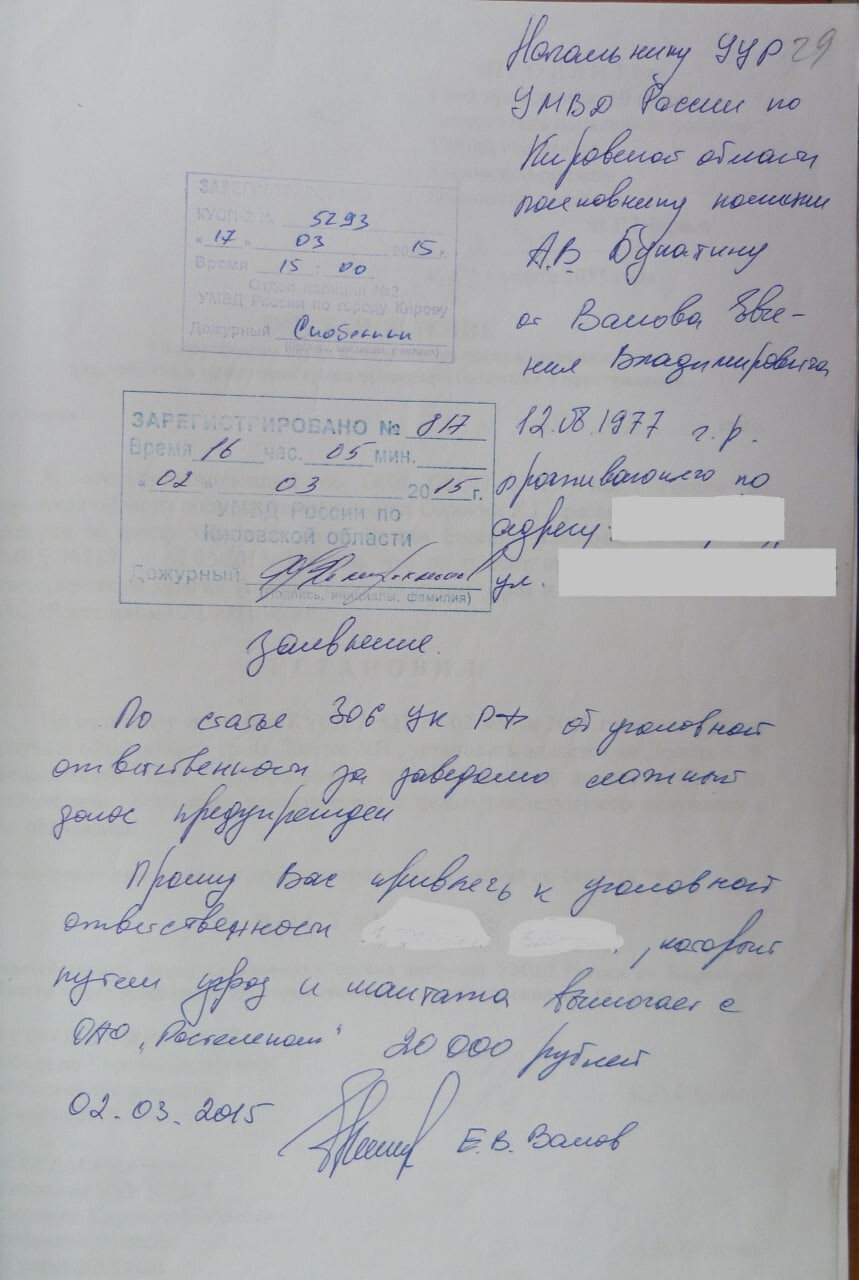 Начальнику УУР 29
УМВД России по
Кировской области
полковнику полиции
А.В.
от Валова Евге-
ния Владимировича
12.08.1977 г.р.
проживающего по
адресу:
ул.
ЗАРЕГИСТРИРОВАНО
КУСП-2 № 5293
"17" 03 2015г.
Время 15:00
Отдел полиции №2
УМВД России по городу Кирову
Дежурный
ЗАРЕГИСТРИРОВАНО № 817
Время 16 час. 05 мин.
"02 03 2015г.
УМВД России по
Кировской области
Дежурный
(подпись, инициалы, фамилия)
Заявление.
По статье 306 УК РФ об уголовной
ответственности за заведомо ложный
донос предупрежден
Прошу Вас привлечь к уголовной
ответственности , который
путем угроз и шантажа вымогает с
ОАО "Ростелеком" 20 000 рублей
02.03.2015 Е.В. Валов